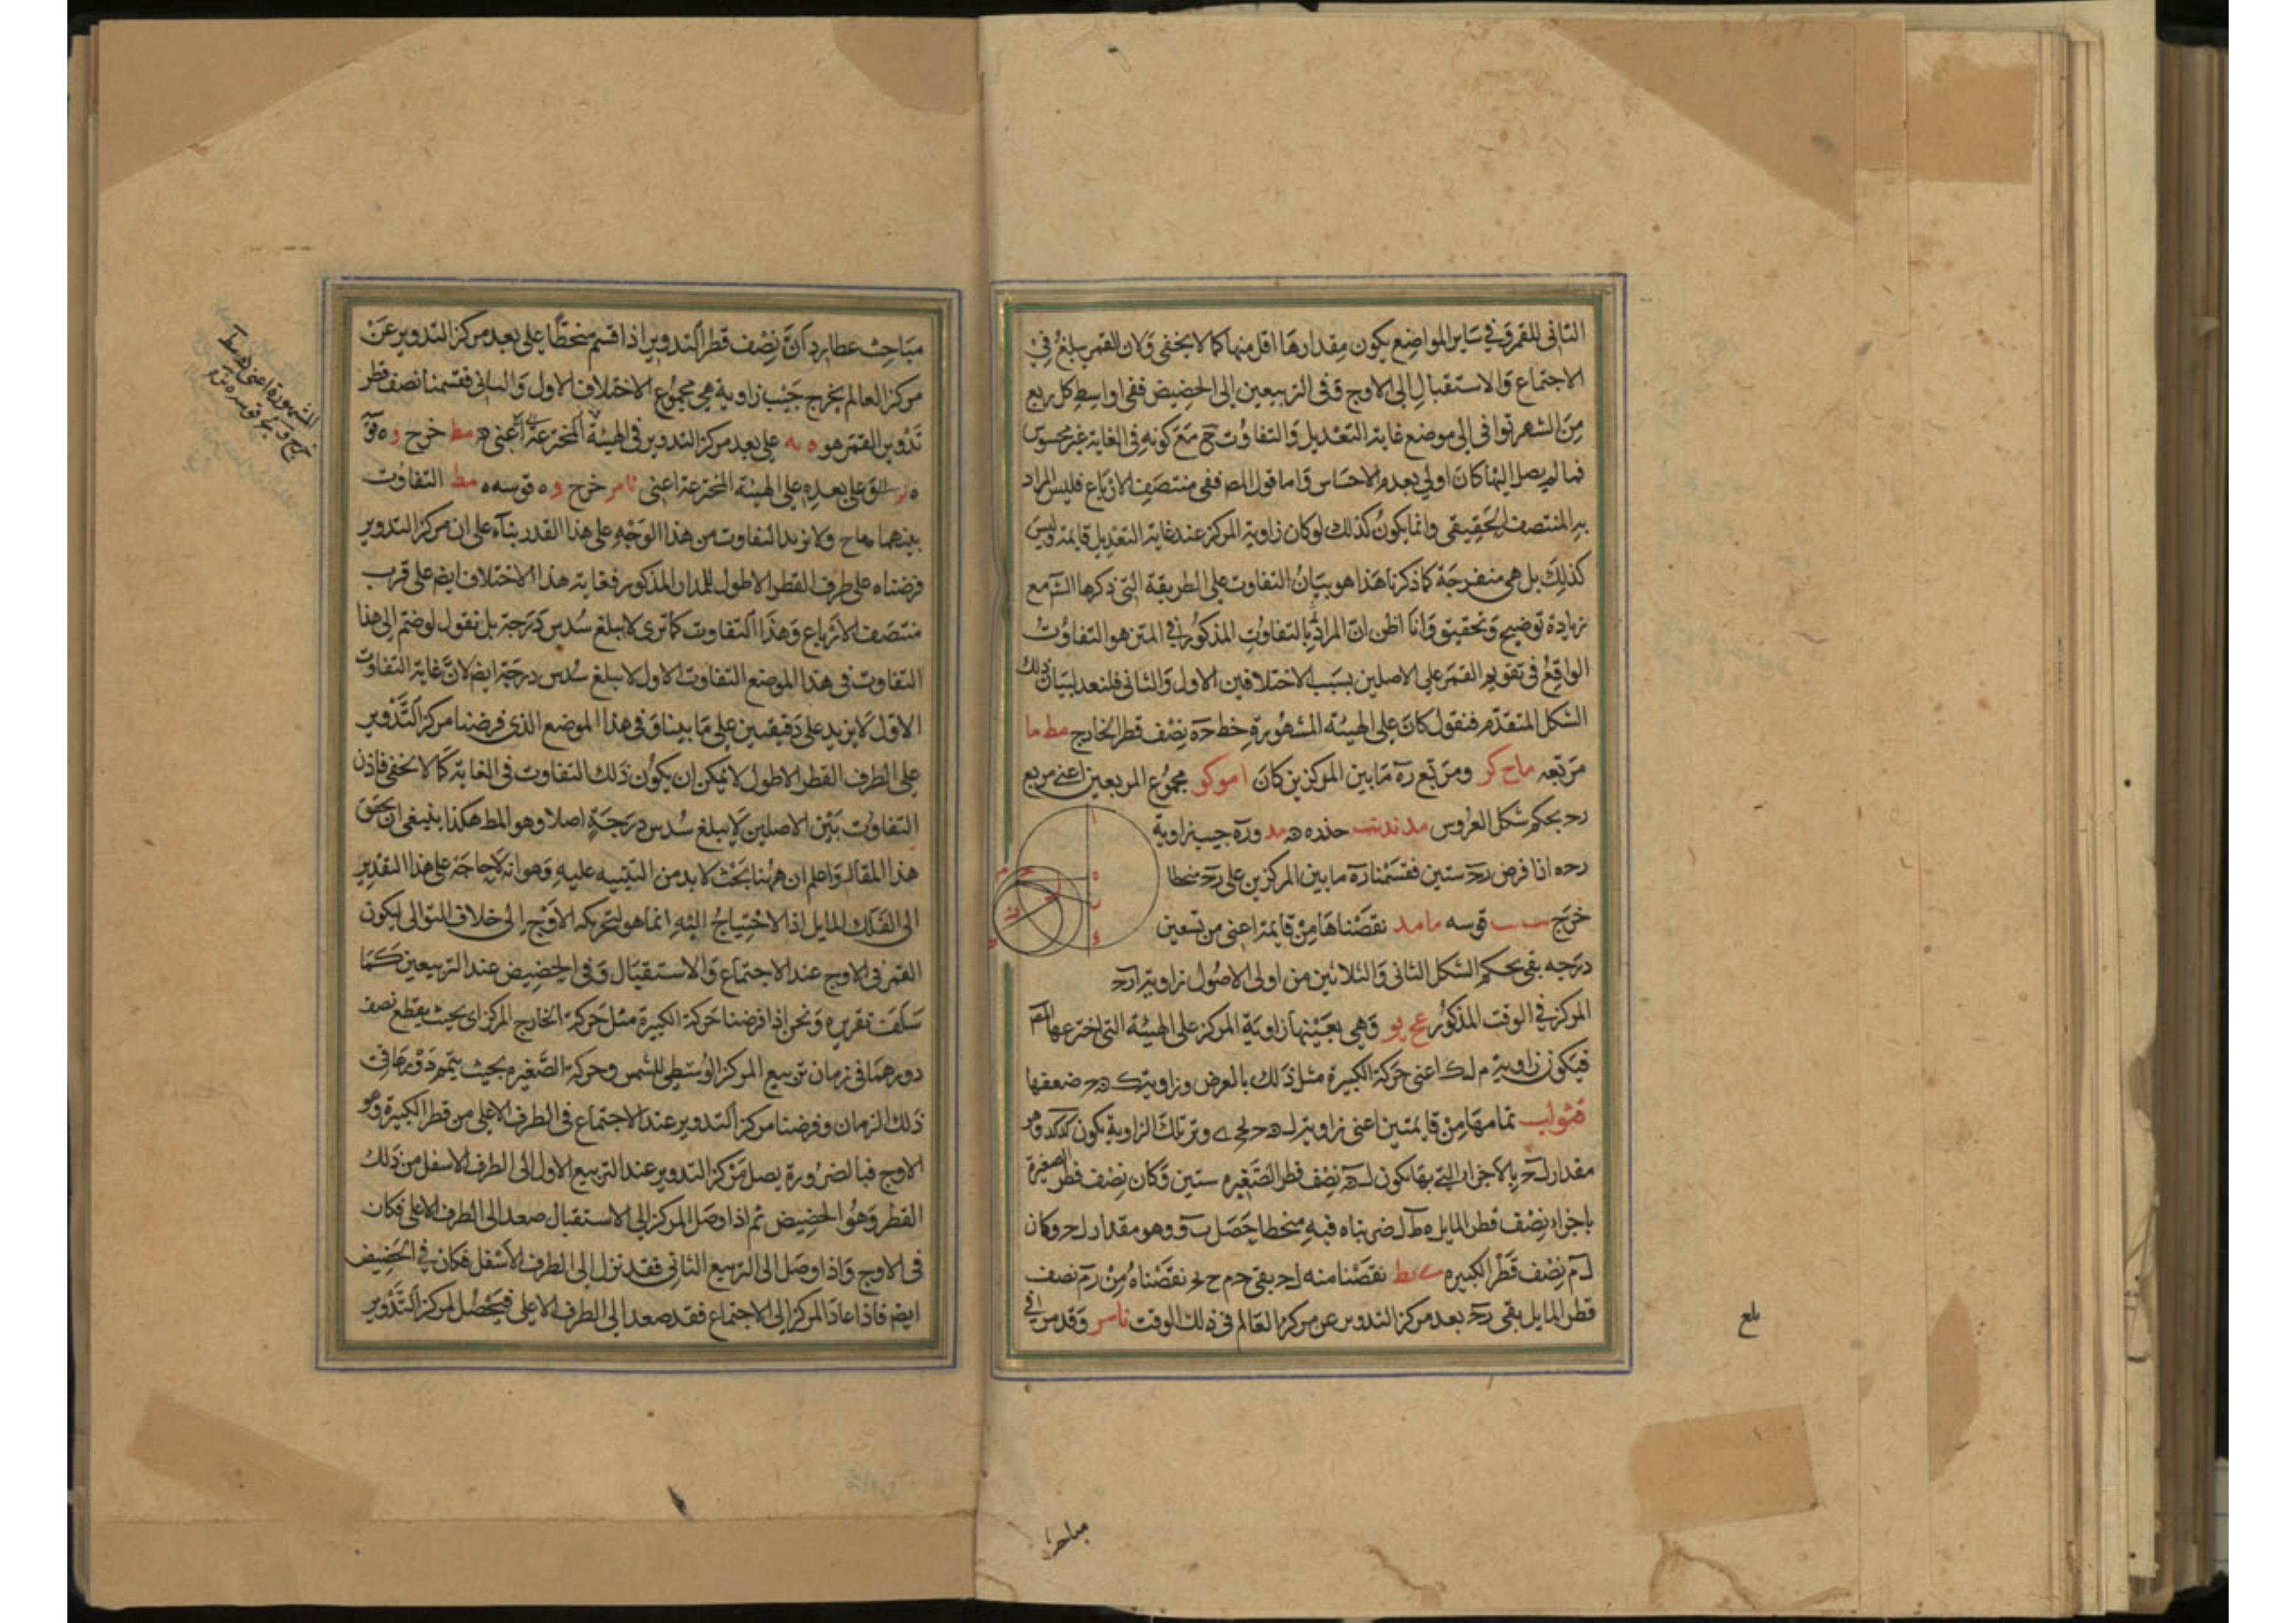 الثانى للقمر وفى ساير المواضع يكون مقدارها اقل منها كما لا يخفى ولان القمر يبلغ فى
الاجتماع والاستقبال الى الاوج وفى التربيعين الى الحضيض ففى اواسط كل ربع
من الشهر توافى الى موضع غاية التعديل والتفاوت مع كونه فى الغاية غير محسوس
فما لم يصل اليها كان اولى بعدم الاحساس واما قول المص ففى منتصف الارباع فليس المراد
به المنتصف الحقيقى وانما يكون كذلك لو كان زاوية المركز عند غاية التعديل قايمة وليس
كذلك بل هى منفرجة كما ذكرنا هذا هو بيان التفاوت على الطريقة التى ذكرها الش مع
زيادة توضيح وتحقيق وانا اظن ان المراد بالتفاوت المذكور فى المتن هو التفاوت
الواقع فى تقويم القمر على الاصلين بسبب الاختلافين الاول والثانى فلنعد لبيان ذلك
الشكل المتقدم فنقول كان على الهيئه المشهورة خط حه نصف قطر الخارج مط ما
مربعه ومربع ره ما بين المركزين كان مجموع المربعين اعنى مربع
رح بحكم شكل العروس جذره وره جيب زاوية
رحه اذا فرض رح ستين فقسمنا ره ما بين المركزين على رح منحطا
خرج قوسه ما مد نقصناها من قايمة اعنى من تسعين
درجه بقى بحكم الشكل الثانى والثلاثين من اولى الاصول زاوية ارح
المركز فى الوقت المذكور وهى بعينها زاوية المركز على الهيئة التى اخترعها المص
فيكون زاوية م ل ك اعنى حركة الكبيرة مثل ذلك بالعرض وزاوية ك ه ح ضعفها
تمامها من قايمتين اعنى زاوية ل ه ح وتر تلك الزاوية يكون وهو
مقدار ل ح بالاجزاء التى بها يكون ل ه نصف قطر الصغيرة ستين وكان نصف قطر الصغيرة
باجزاء نصف قطر المايل ضربناه فيه منحطا حصل وهو مقدار ل ح وكان
ل م نصف قطر الكبيره نقصنا منه ل ح بقى ح م نقصناه من رم نصف
قطر المايل بقى رح بعد مركز التدوير عن مركز العالم فى ذلك الوقت وقد مر فى
بلغ
مباحث
مباحث عطارد ان نصف قطر التدوير اذا قسم منحطا على بعد مركز التدوير عن
مركز العالم يخرج جيب زاوية هى مجموع الاختلاف الاول والثانى فقسمنا نصف قطر
تدوير القمر هو ه يه على بعد مركز التدوير فى الهيئة المخترعة اعنى خرج
على بعده على الهيئة المخترعة اعنى خرج قوسه التفاوت
بينهما ولا يزيد التفاوت من هذا الوجه على هذا القدر بناء على ان مركز التدوير
فرضناه على طرف القطر الاطول للمدار المذكور فغاية هذا الاختلاف ايض على قرب
منتصف الارباع وهذا التفاوت كما ترى لا يبلغ سدس درجة بل نقول لو ضم الى هذا
التفاوت فى هذا الموضع التفاوت الاول لا يبلغ سدس درجة ايض لان غاية التفاوت
الاول لا يزيد على دقيقتين على ما بينا وفى هذا الموضع الذى فرضنا مركز التدوير
على الطرف القطر الاطول لا يمكن ان يكون ذلك التفاوت فى الغاية كما لا يخفى فاذن
التفاوت بين الاصلين لا يبلغ سدس درجة اصلا وهو المط هكذا ينبغى ان يحقق
هذا المقال واعلم ان ههنا بحث لا بد من التنبيه عليه وهو انه لا حاجة على هذا التقدير
الى الفلك المايل اذ الاحتياج اليه انما هو لتحريكه الاوج الى خلاف التوالى ليكون
القمر فى الاوج عند الاجتماع والاستقبال وفى الحضيض عند التربيعين كما
سلف تقريره ونحن اذا فرضنا حركة الكبيرة مثل حركة الخارج المركز اى بحيث يقطع نصف
دورها فى زمان تربيع المركز الوسطى للشمس وحركة الصغيره بحيث يتم دورها فى
ذلك الزمان وفرضنا مركز التدوير عند الاجتماع فى الطرف الاعلى من قطر الكبيرة وهو
الاوج فبالضرورة يصل مركز التدوير عند التربيع الاول الى الطرف الاسفل من ذلك
القطر وهو الحضيض ثم اذا وصل المركز الى الاستقبال صعد الى الطرف الاعلى فكان
فى الاوج واذا وصل الى التربيع الثانى فقد نزل الى الطرف الاسفل فكان فى الحضيض
ايض فاذا عاد المركز الى الاجتماع فقد صعد الى الطرف الاعلى فيحصل لمركز التدوير